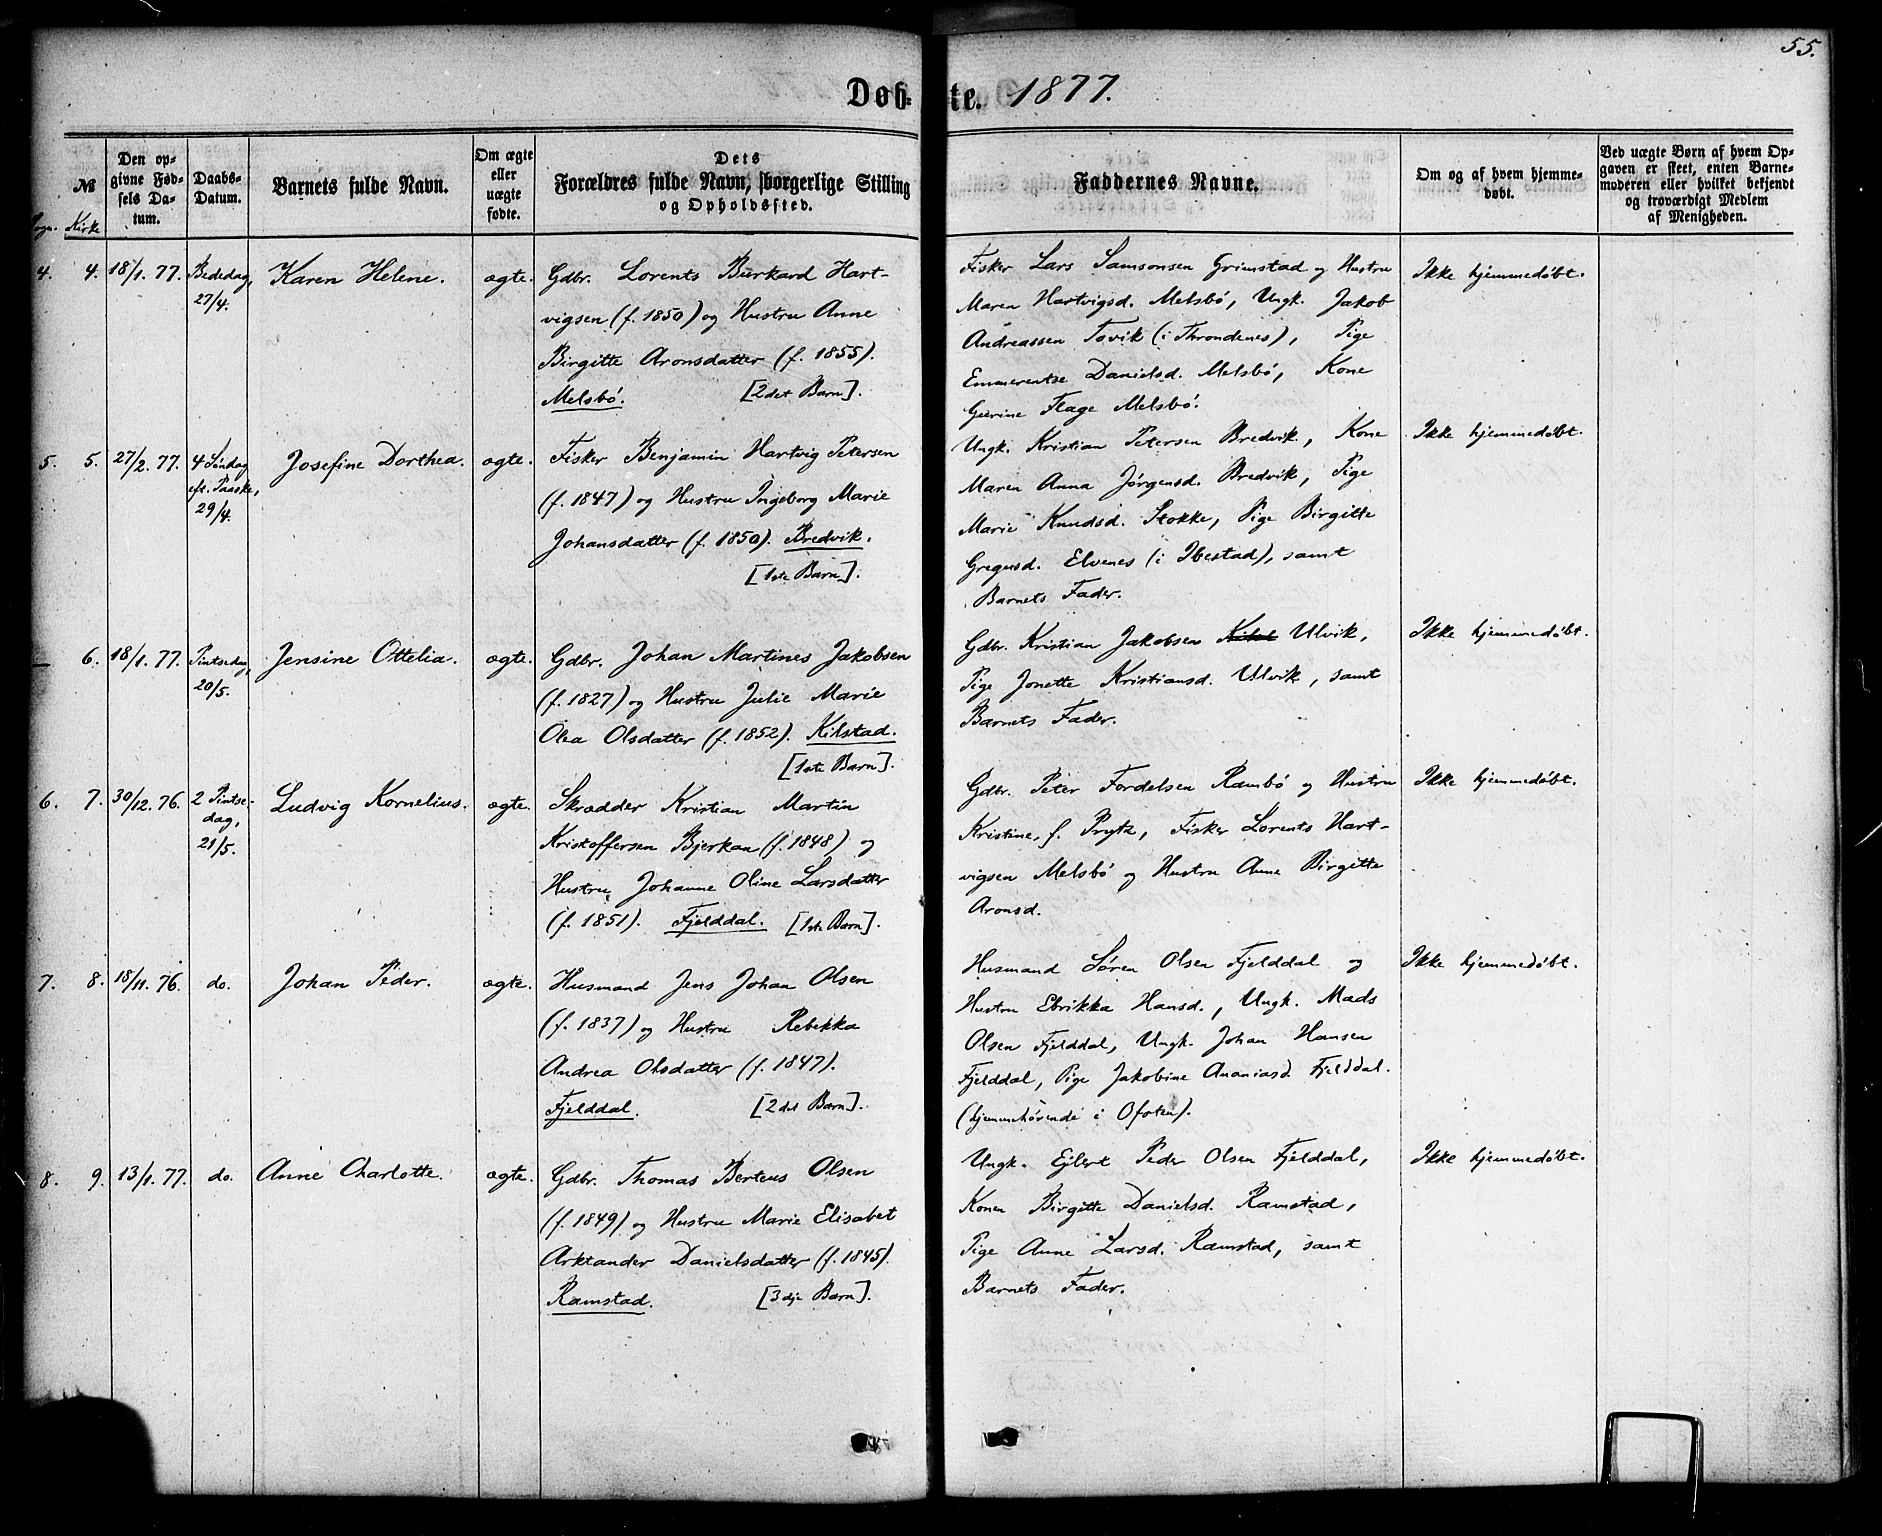 55.
Døb= te. 1877.
№
Sogn. Kirke
Den op-
givne Fød-
sels Da-
tum.
Daabs-
Datum.
Barnets fulde Navn.
Om ægte
eller
uægte
fødte.
Dets
Forældres fulde Navn, borgerlige Stilling
og Opholdssted.
Faddernes Navne.
Om og af hvem hjemme-
døbt.
Ved uægte Børn af hvem Op-
gaven er skeet, enten Barne-
moderen eller hvilket bekjendt
og troværdigt Medlem
af Menigheden.
4. 4. 18/1. 77. Bededag,
27/4.
Karen Helene. ægte.
Gdbr. Lorents Burkard Hart-
vigsen (f. 1850) og Hustru Anne
Birgitte Aronsdatter (f. 1855).
Melsbö. [2det Barn].
Fisker Lars Samsonsen Grimstad og Hustru
Maren Hartvigsd. Melsbö, Ungk. Jakob
Andreassen Tovik (i Throndenes), Pige
Emmerentse Danielsd. Melsbö, Kone
Gurine Flage Melsbö.
Ikke hjemmedöbt.
5. 5. 27/2. 77. 4 Söndag
eft. Paaske,
29/4.
Josefine Dorthea. ægte.
Fisker Benjamin Hartvig Petersen
(f. 1847) og Hustru Ingeborg Marie
Johansdatter (f. 1850). Bredvik.
[1ste Barn].
Ungk. Kristian Petersen Bredvik, Kone
Maren Anna Jörgensd. Bredvik, Pige
Marie Knudsd. Stokke, Pige Birgitte
Gregusd. Elvenes (i Ibestad), samt
Barnets Fader.
Ikke hjemmedöbt.
— 6. 18/1. 77. Pintsedag,
20/5.
Jensine Ottelia. ægte.
Gdbr. Johan Martines Jakobsen
(f. 1827) og Hustru Julie Marie
Olea Olsdatter (f. 1852). Kilstad.
[1ste Barn].
Gdbr. Kristian Jakobsen Ulvik,
Pige Jonette Kristiansd. Ulvik, samt
Barnets Fader.
Ikke hjemmedöbt.
6. 7. 30/12. 76. 2 Pintse-
dag,
21/5.
Ludvig Kornelius. ægte.
Skrædder Kristian Martin
Kristoffersen Bjerkan (f. 1848) og
Hustru Johanne Oline Larsdatter
(f. 1851). Fjelddal. [1ste Barn].
Gdbr. Peter Fordelsen Rambö og Hustru
Kristine, f. Prytz, Fisker Lorents Hart-
vigsen Melsbö og Hustru Anne Birgitte
Aronsd.
Ikke hjemmedöbt.
7. 8. 18/11. 76. do. Johan Peder. ægte.
Husmand Jens Johan Olsen
(f. 1837) og Hustru Rebekka
Andrea Olsdatter (f. 1847).
Fjelddal. [2det Barn].
Husmand Sören Olsen Fjelddal og
Hustru Ebrikka Hansd., Ungk. Mads
Olsen Fjelddal, Ungk. Johan Hansen
Fjelddal, Pige Jakobine Ananiasd. Fjelddal.
(hjemmehörende i Ofoten).
Ikke hjemmedöbt.
8. 9. 13/1. 77. do. Anne Charlotte. ægte.
Gdbr. Thomas Berteus Olsen
(f. 1849) og Hustru Marie Elisabet
Arktander Danielsdatter (f. 1845).
Ramstad. [3dje Barn].
Ungk. Ejlert Peder Olsen Fjelddal,
Konen Birgitte Danielsd. Ramstad,
Pige Anne Larsd. Ramstad, samt
Barnets Fader.
Ikke hjemmedöbt.